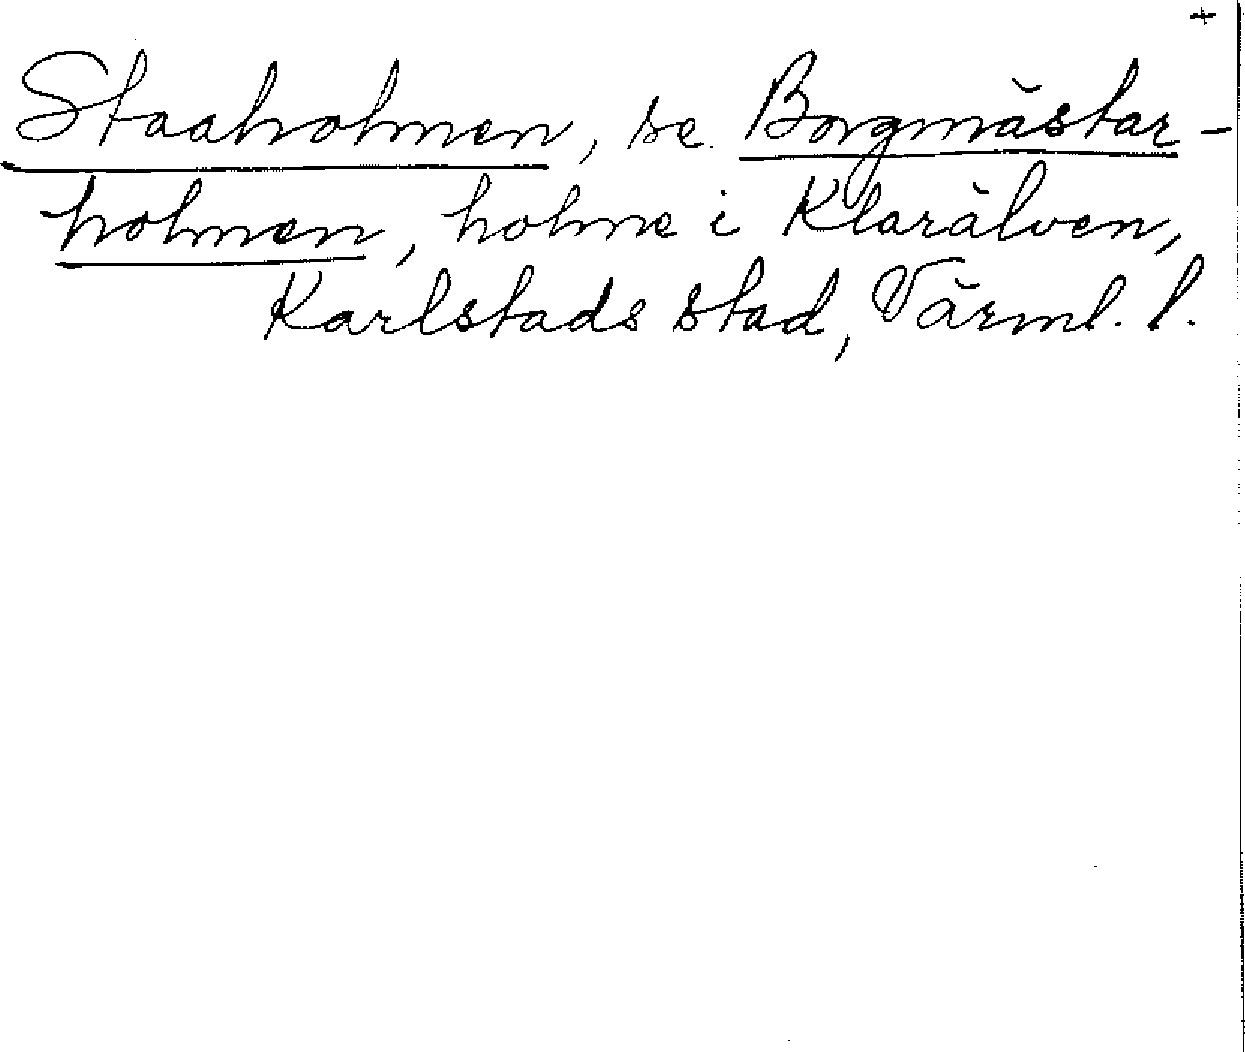 +
Staaholmen, se Borgmästar-
holmen, holme i Klarälven,
Karlstads stad, Värml. l.